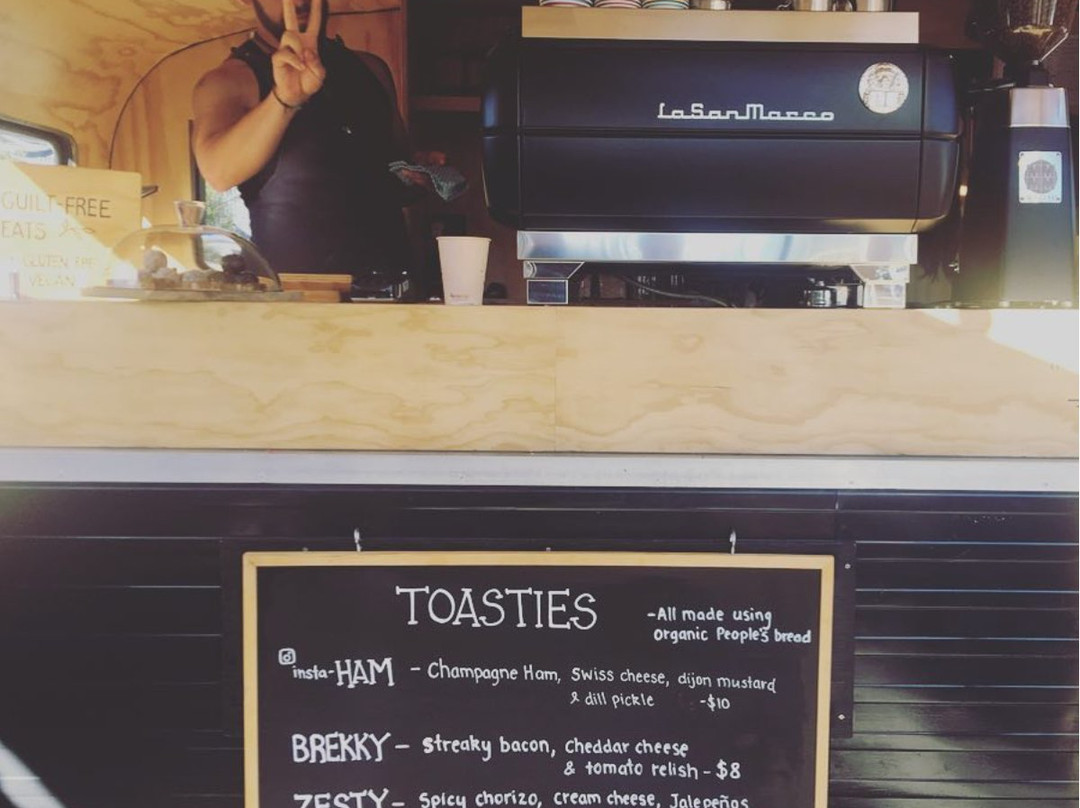 GUILT-FREE
EATS
GLUTEN FREE
VEGAN
LaSanMarco
TOASTIES
-All made using
organic People's bread
insta-HAM - Champagne Ham, Swiss cheese, dijon mustard
& dill pickle -$10
BREKKY - Streaky bacon, cheddar cheese
& tomato relish - $8
ZESTY - Spicy chorizo, cream cheese, Jalepeños